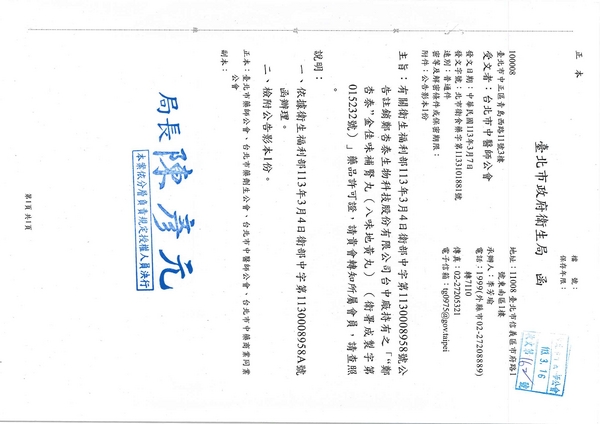 正 本
檔 號：
保存年限：
臺北市政府衛生局 函
地址：11008 臺北市信義區市府路1
號東南區1樓
承辦人：李芳瑜
電話：1999(外縣市02-27208889)
轉7110
傳真：02-27205321
電子信箱：tg0975@gov.taipei
100008
臺北市中正區青島西路11號3樓
受文者：台北市中醫師公會
發文日期：中華民國113年3月7日
發文字號：北市衛食藥字第1133101881號
速別：普通件
密等及解密條件或保密期限：
附件：公告影本1份
主旨：有關衛生福利部113年3月4日衛部中字第1130008958號公
告註銷鄭杏泰生物科技股份有限公司台中廠持有之「“鄭
杏泰”金佳味補腎丸（八味地黃丸）（衛署成製字第
015232號）」藥品許可證，請貴會轉知所屬會員，請查照
。
說明：
一、依據衛生福利部113年3月4日衛部中字第1130008958A號
函辦理。
二、檢附公告影本1份。
正本：臺北市藥師公會、台北市藥劑生公會、台北市中醫師公會、台北市中藥商業同業
公會
副本：
局長 陳彥元
本案依分層負責規定授權人員決行
第1頁 共1頁
113.3.16